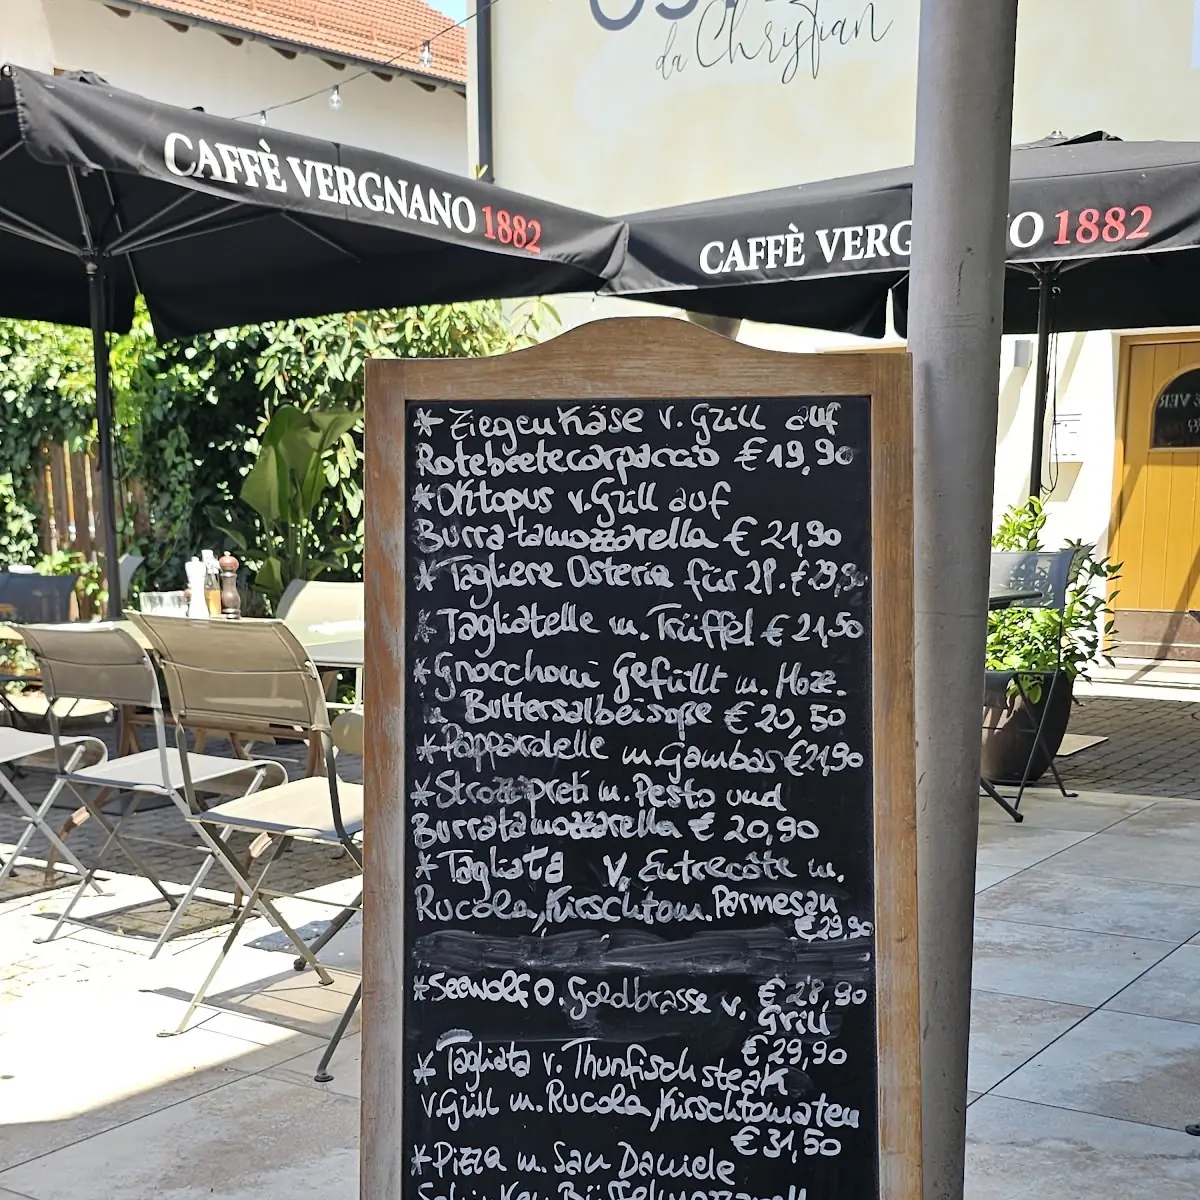 da Christian
CAFFÈ VERGNANO 1882
CAFFÈ VERG O 1882
* Ziegenkäse v. Grill auf
Rotebeetecarpaccio € 19,90
* Oktopus v. Grill auf
Burratamozzarella € 21,90
* Tagliere Osteria für 2P. € 29,90
* Tagliatelle m. Trüffel € 21,50
* Gnocchoni Gefüllt m. Mozz.
Buttersalbeisoße € 20,50
* Pappardelle m. Gambas € 21,90
* Strozzapreti m. Pesto und
Burratamozzarella € 20,90
* Tagliata v. Entrecôte m.
Rucola, Kirschtom. Parmesan
€ 29,90
* Seewolf o. Goldbrasse v. € 28,90
Grill
€ 29,90
* Tagliata v. Thunfischsteak
v. Grill m. Rucola, Kirschtomaten
€ 31,50
* Pizza m. San Daniele
Schinken Büffelmozzarell